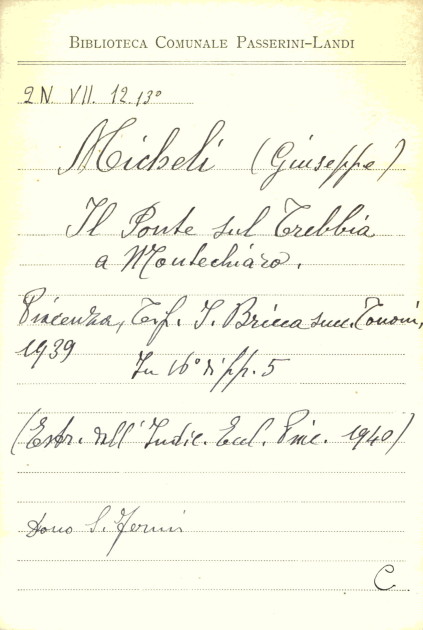 BIBLIOTECA COMUNALE PASSERINI-LANDI
2N VII. 12.13°
Micheli (Giuseppe)
Il Ponte sul Trebbia
a Montechiaro.
Piacenza, Tip. S. Bricca succ. Tononi,
1939
In 16° di pp. 5
(Estr. dall'Indic. Eccl. Piac. 1940)
Dono S. Fermi
C